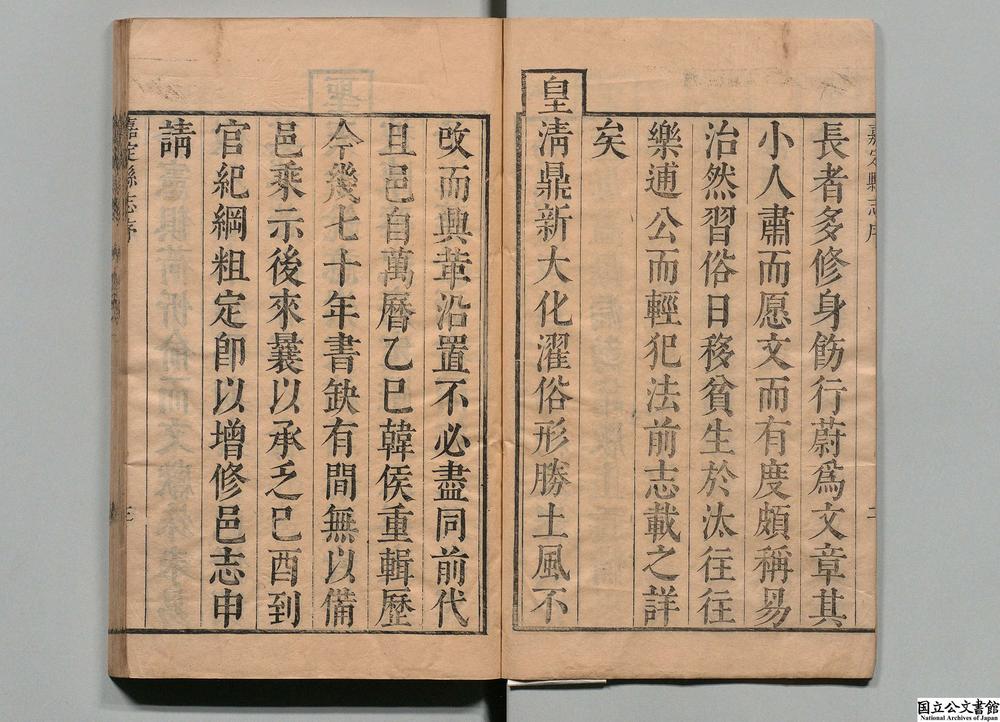 嘉定縣志序
二
長者多修身飭行蔚爲文章其
小人肅而愿文而有度頗稱易
治然習俗日移貧生於汰往往
樂逋公而輕犯法前志載之詳
矣
皇清鼎新大化濯俗形勝土風不
攺而興革沿置不必盡同前代
且邑自萬曆乙巳韓侯重輯歷
今幾七十年書缺有間無以備
邑乘示後來曩以承乏己酉到
官紀綱粗定卽以增修邑志申
請
嘉定縣志序
三
国立公文書館
National Archives of Japan